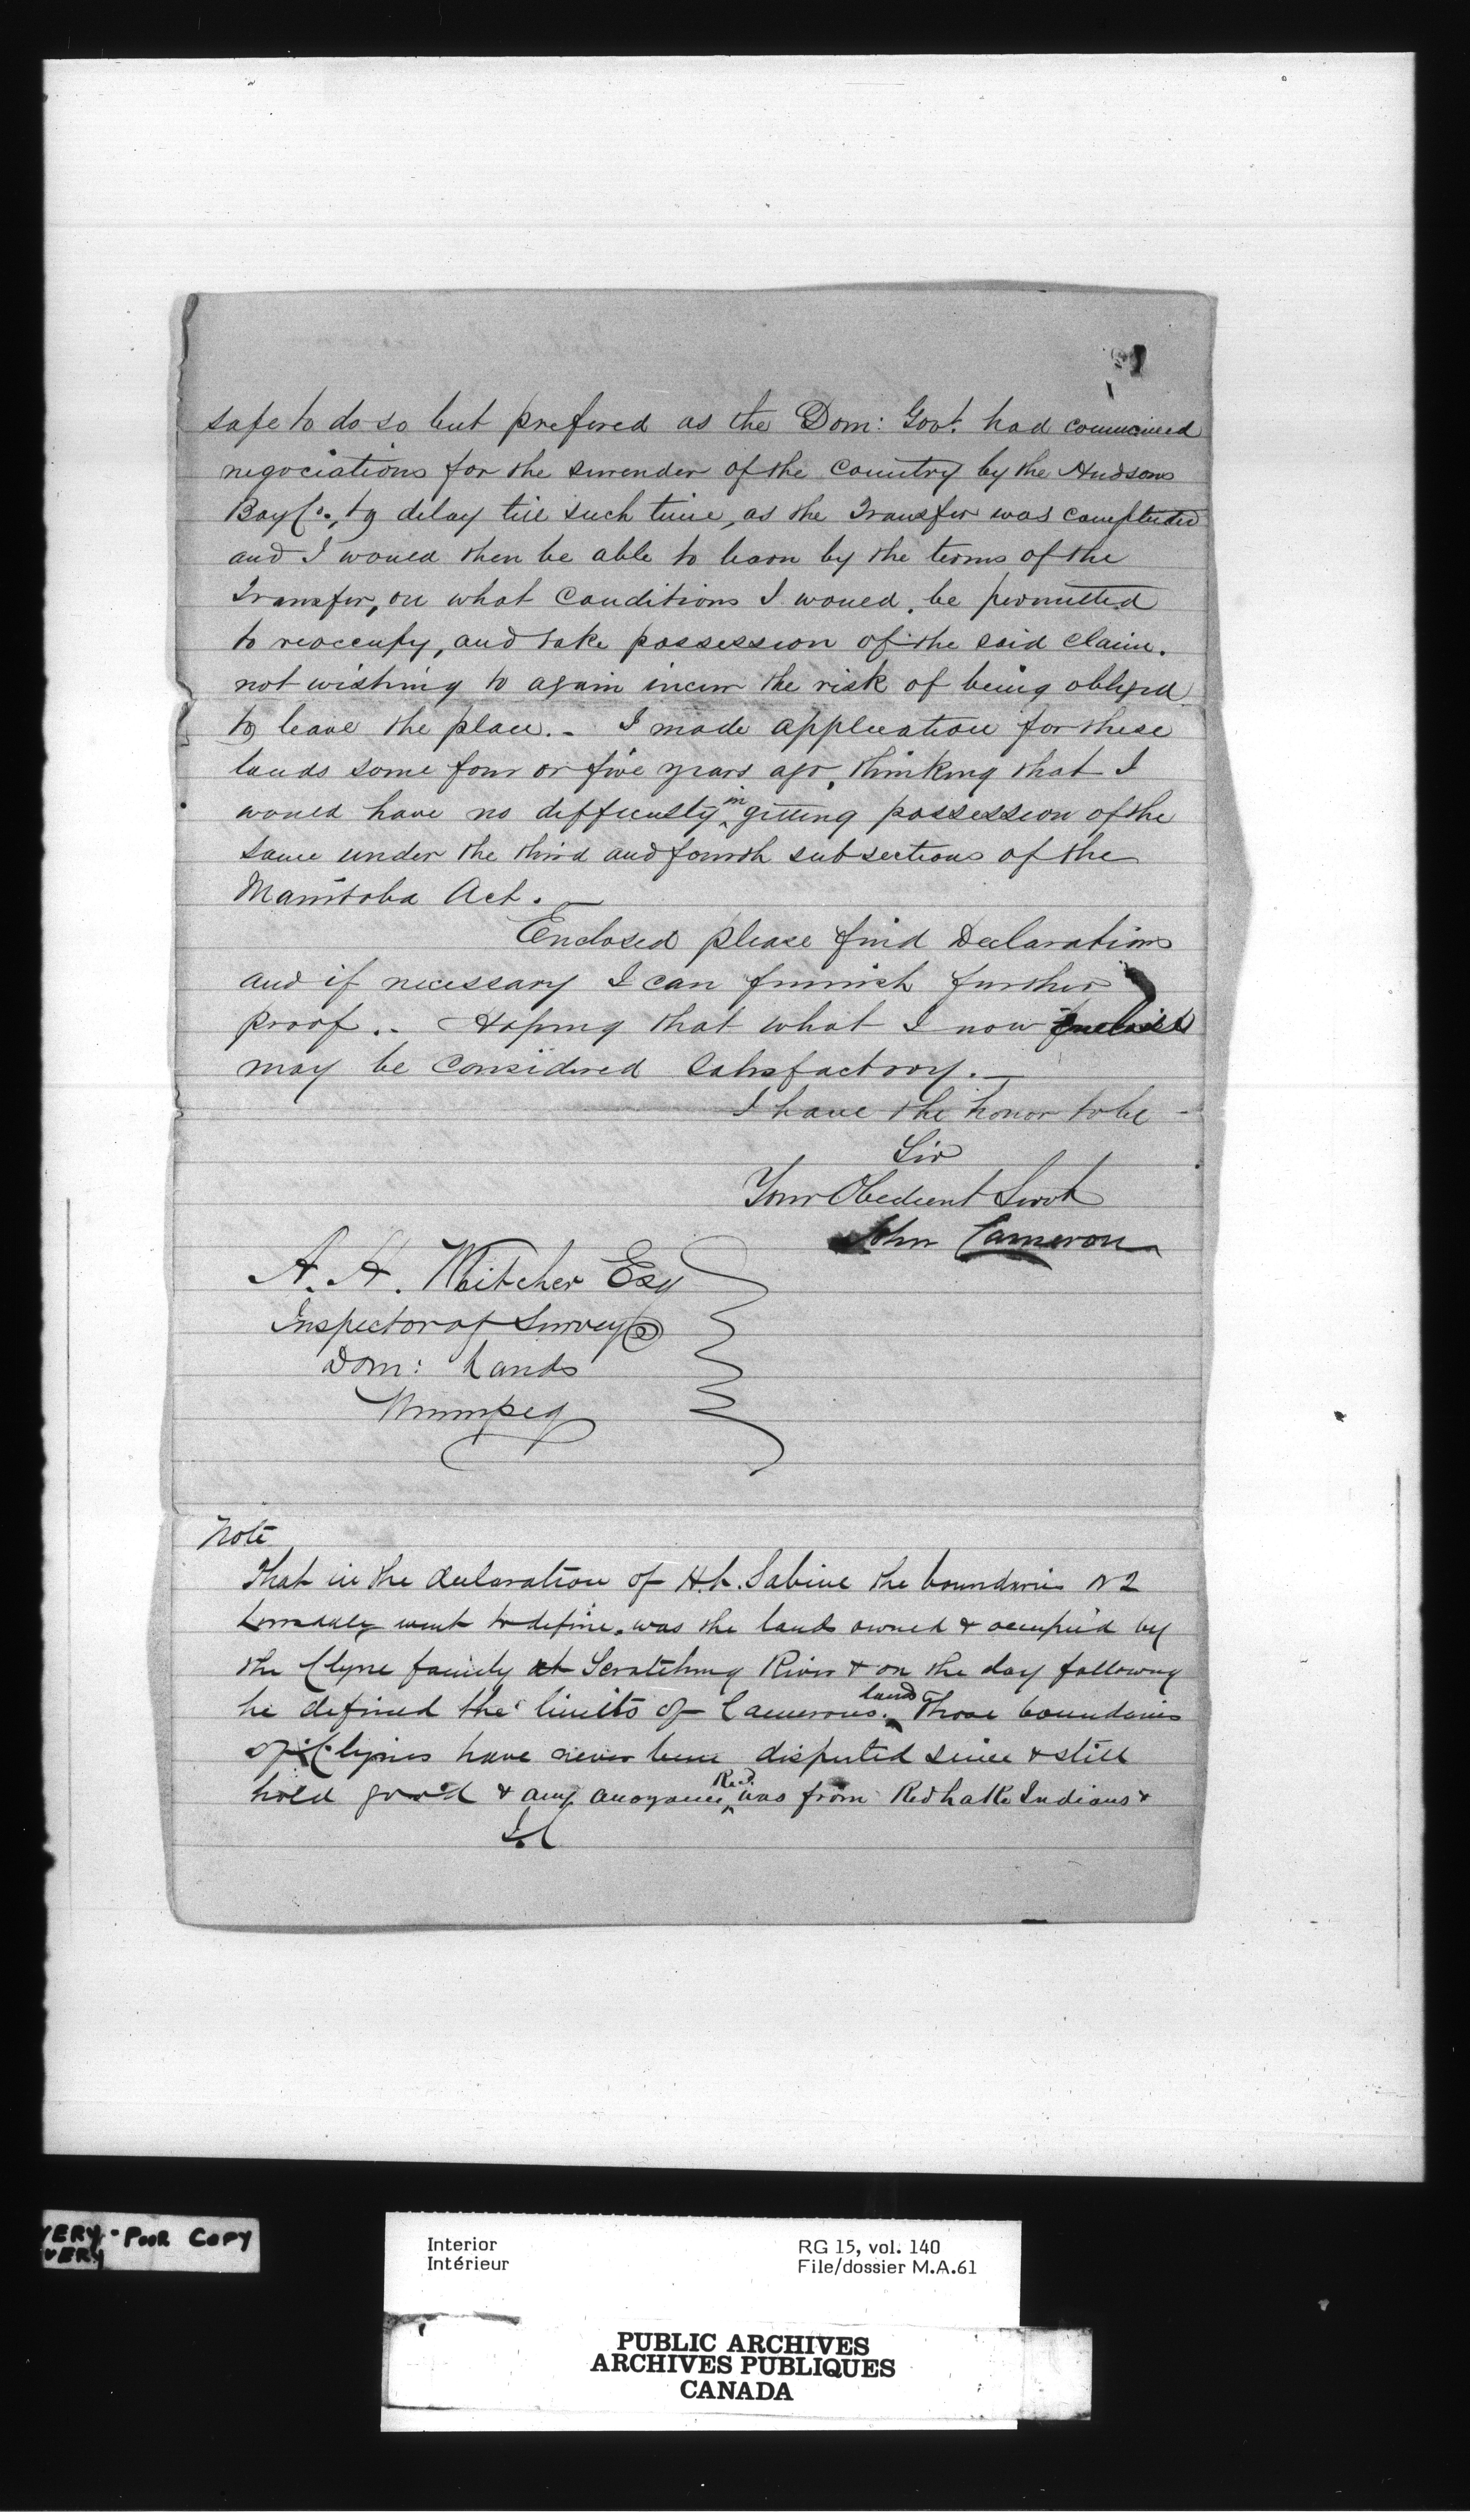 safe to do so but prefered as the Dom: Govt. had commenced
negociations for the surender of the Country by the Hudsons
Bay Co., to delay till such time, as the Transfer was completed
and I would then be able to learn by the terms of the
Transfer, on what Conditions I would be permitted
to reoccupy, and take possession of the said Claim.
not wishing to again incur the risk of being obliged
to leave the place. - I made application for these
lands some four or five years ago, thinking that I
would have no difficulty in getting possession of the
same under the third and fourth subsections of the
Manitoba Act. -
Enclosed please find Declarations
and if necessary I can furnish further
proof. - Hoping that what I now Enclose
may be Considered Satisfactory. -
I have the honor to be -
Sir
Your Obedient Servt
John Cameron
A. H. Whitcher Esq
Inspector of Surveys
Dom: Lands
Winnipeg
Note
That in the declaration of H.L. Sabine the boundaries
went to define, was the lands owned & occupied by
the Clyne family at Scratching River & on the day following
he defined the limits of Camerons lands. Those boundaries
of Clynes have never been disputed since & still
hold good & any anoyance Recd. was from Red Lake Indians &
J.C
VERY - POOR COPY
VERY
Interior
Intérieur
RG 15, vol. 140
File/dossier M.A.61
PUBLIC ARCHIVES
ARCHIVES PUBLIQUES
CANADA